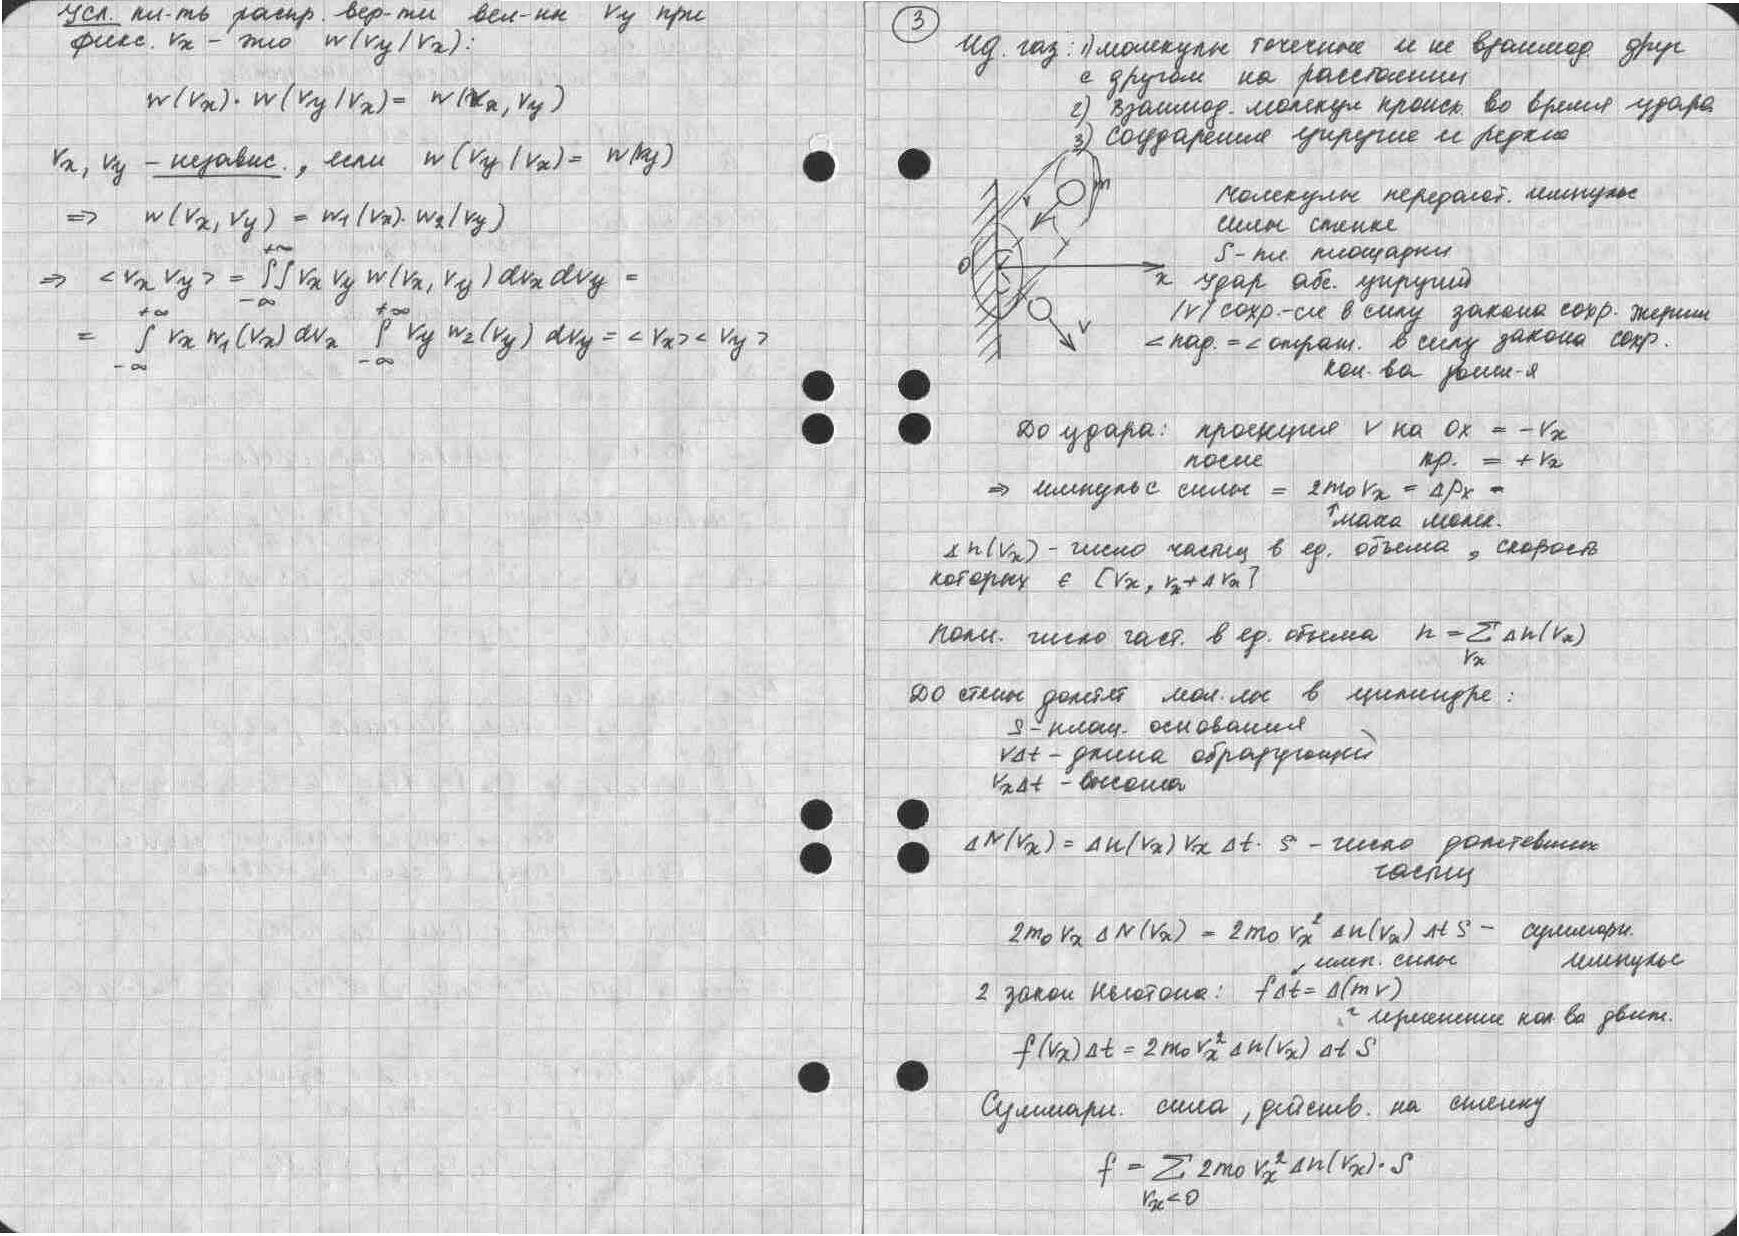 Усл. пл-ть распр. вер-ти вел-ны Vy при
фикс. Vx - это w(Vy/Vx):
w(Vx)·w(Vy/Vx)= w(Vx,Vy)
Vx, Vy - независ., если w(Vy/Vx)= w(Vy)
⇒ w(Vx,Vy) = w₁(Vx)·w₂(Vy)
⇒ <Vx Vy> = ∫∫ Vx Vy w(Vx,Vy) dVx dVy =
+∞
-∞
= ∫ Vx w₁(Vx) dVx ∫ Vy w₂(Vy) dVy = <Vx><Vy>
+∞ +∞
-∞ -∞
3
Ид. газ: 1) молекулы точечные и не взаимод. друг
с другом на расстоянии
2) Взаимод. молекул происх. во время удара
3) Соударения упругие и редкие
m
v
O
x
v
Молекулы передают. импульс
силы стенке
S - пл. площадки
Удар абс. упругий
|V| сохр.-ся в силу закона сохр. энергии
∠пад. = ∠отраж. в силу закона сохр.
кол-ва движ-я
До удара: проекция V на Ox = -Vx
после пр. = +Vx
⇒ импульс силы = 2m₀Vx = Δpx =
↑масса молек.
Δn(Vx) - число частиц в ед. объема, скорость
которых ∈ [Vx, Vx+ΔVx]
Полн. число част. в ед. объема n = Σ Δn(Vx)
Vx
До стены долетят мол-лы в цилиндре:
S - площ. основания
VΔt - длина образующей
VxΔt - высота
ΔN(Vx) = Δn(Vx) Vx Δt · S - число долетевших
частиц
2m₀Vx ΔN(Vx) = 2m₀Vx² Δn(Vx) Δt S - суммарн.
имп. силы импульс
2 закон Ньютона: fΔt = Δ(mv)
изменение кол-ва движ.
f(Vx)Δt = 2m₀Vx² Δn(Vx) Δt S
Суммарн. сила, действ. на стенку
f = Σ 2m₀Vx² Δn(Vx)·S
Vx<0